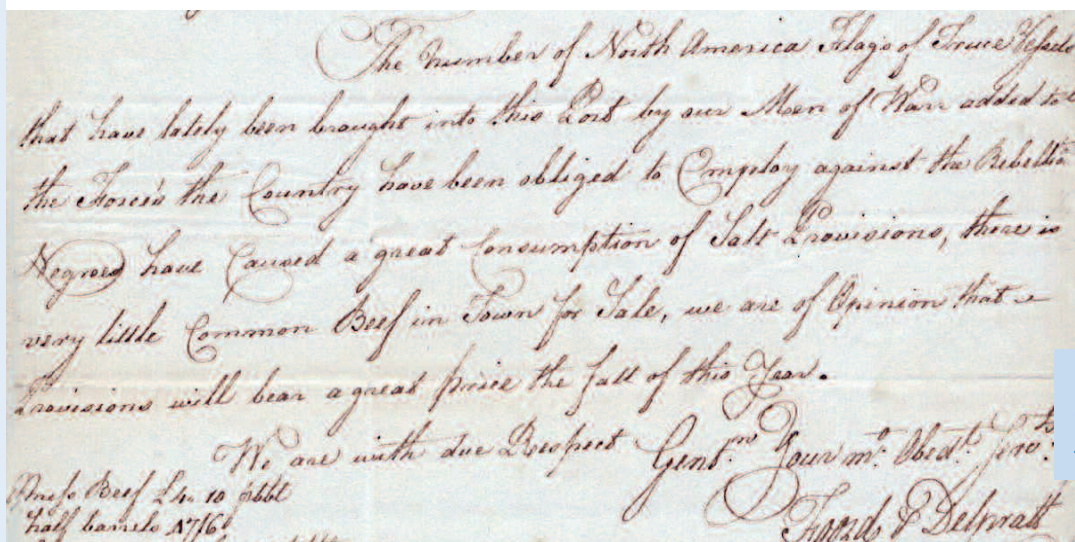 The Number of North America Flags of Truce Vessels
that have lately been brought into this Port by our Men of Warr added to
the Forces the Country have been obliged to Employ against the Rebellious
Negroes have Caused a great Consumption of Salt Provisions, there is
very little Common Beef in Town for Sale, we are of Opinion that
Provisions will bear a great price the fall of this Year.
We are with due Respect Gentn. Your mo. Obedt. Servts.
Mess Beef £4. 10 pbbl
half barrels 47/6
Foord & Delpratt